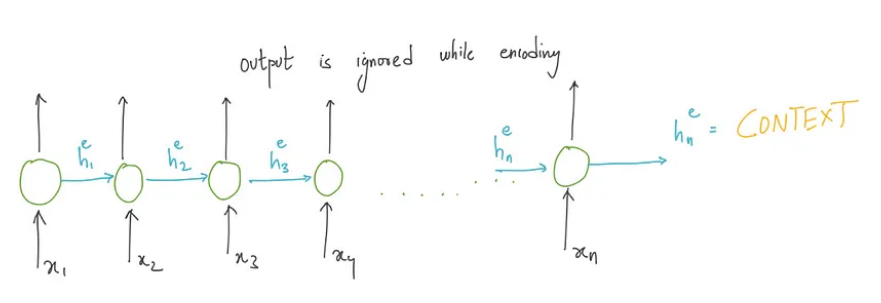 output is ignored while encoding
h₁ᵉ h₂ᵉ h₃ᵉ hₙᵉ hₙᵉ = CONTEXT
x₁ x₂ x₃ x₄ xₙ